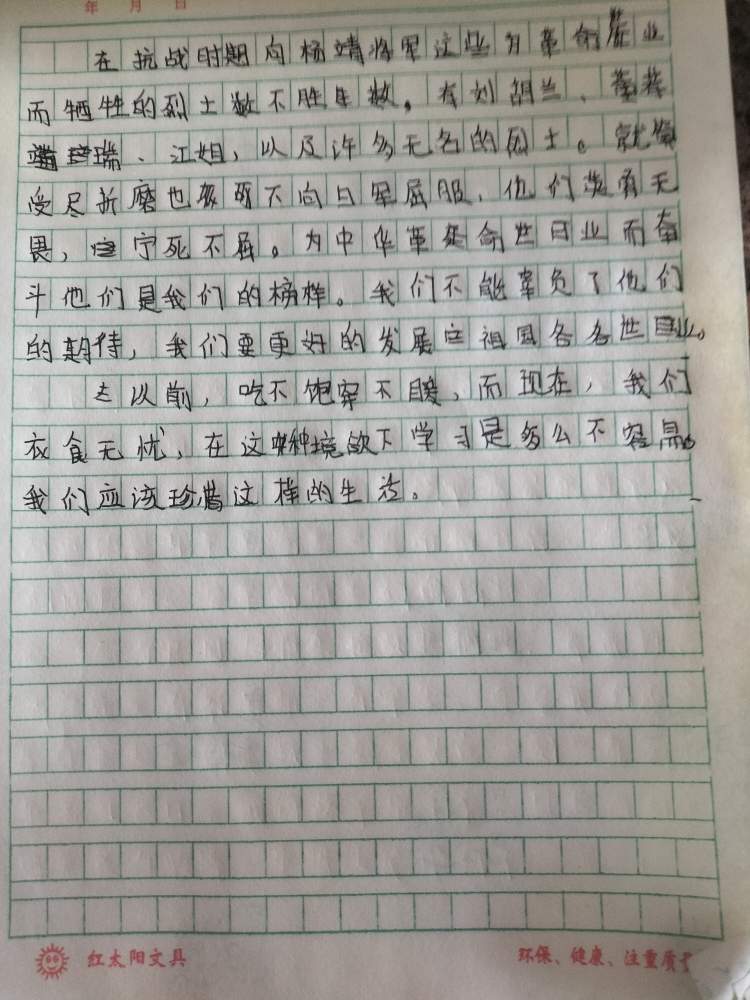 年 月 日
在抗战时期向杨靖将军这些为革命业
而牺牲的烈士数不胜数。有刘胡兰、
瑞、江姐，以及许多无名的烈士。就
受尽折磨也不向日军屈服，他们无
畏，宁死不屈。为中华革命业而奋
斗他们是我们的榜样。我们不能辜负了他们
的期待，我们要更好的发展祖国各
以前，吃不饱穿不暖，而现在，我们
衣食无忧，在这种境下学习是多么不容易。
我们应该珍惜这样的生活。
红太阳文具
环保、健康、注重质